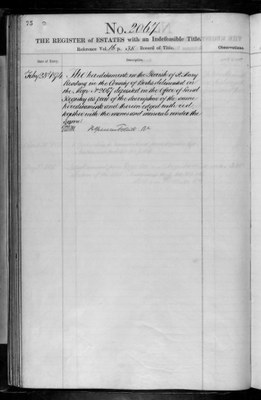 75
No. 2067.
THE REGISTER of ESTATES with an Indefeasible Title.
Reference Vol. p. Record of Title.
Observations.
Date of Entry.
Description.
The hereditaments in the Parish of St Mary
Reading in the County of Berks delineated on
the Map No 2067 deposited in the Office of Land
Registry as part of the description of the same
hereditaments and therein edged with red
together with the mines and minerals under the
same